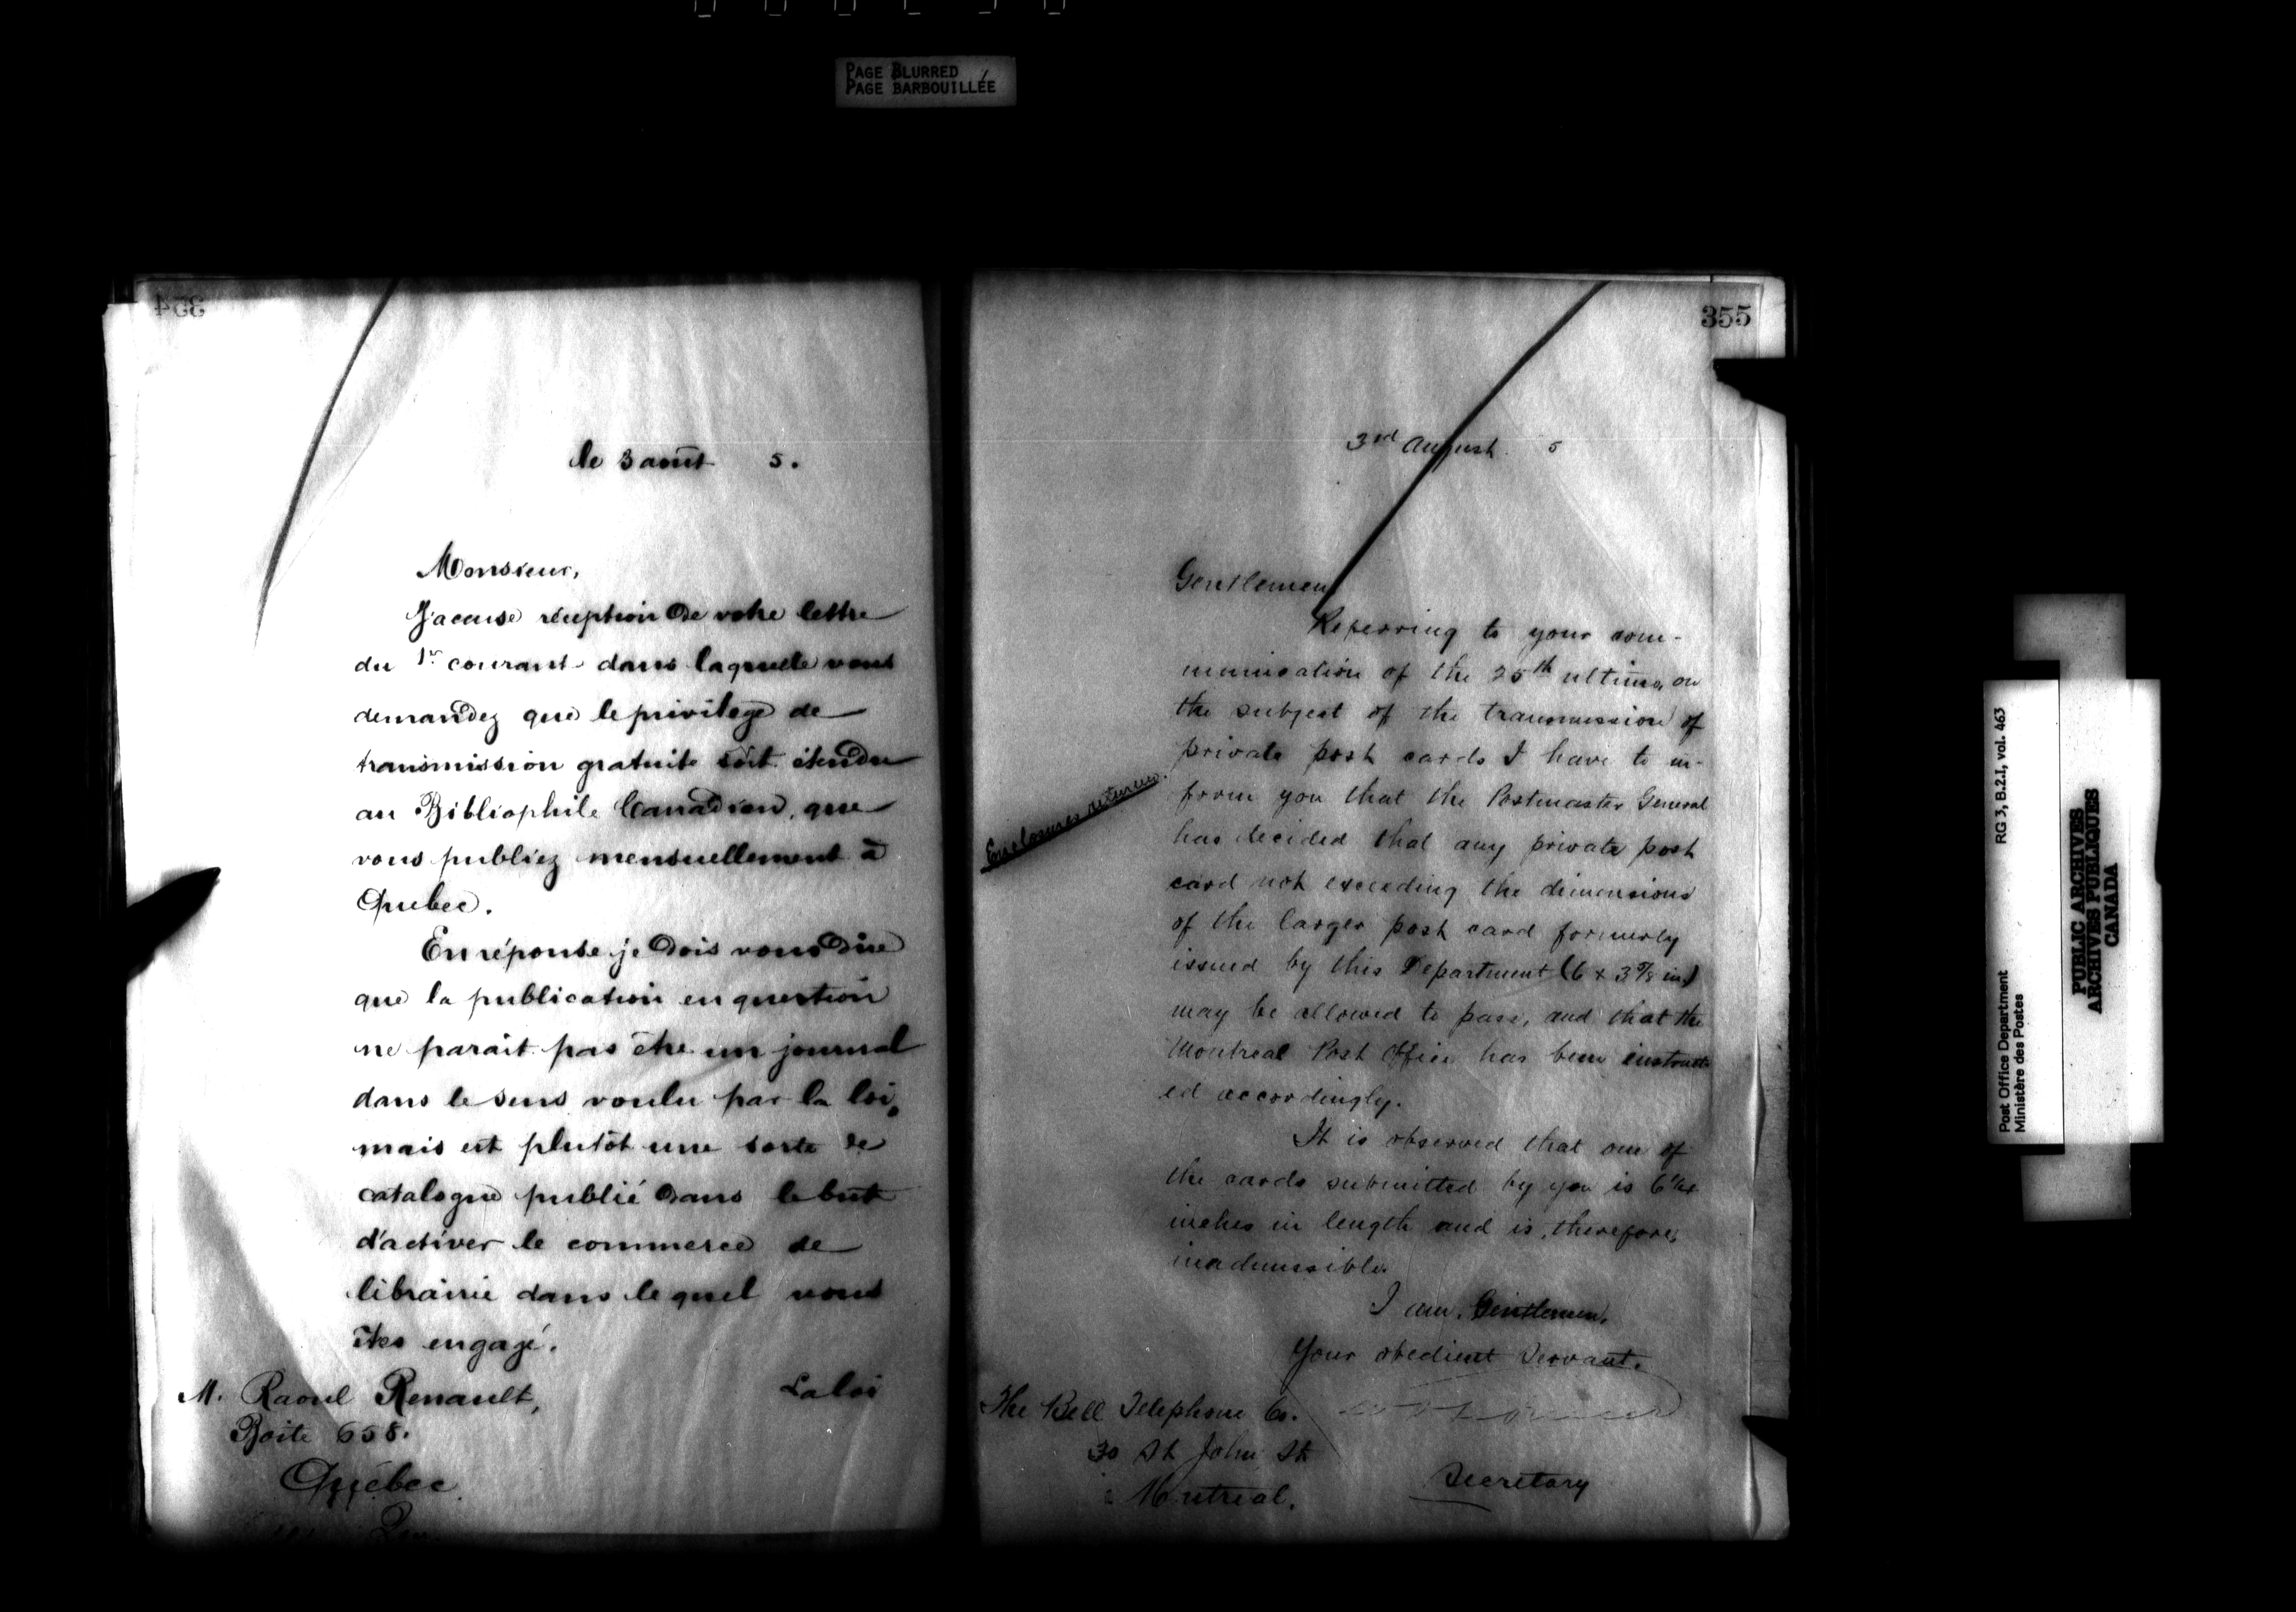 PAGE BLURRED
PAGE BARBOUILLÉE
354
le 3 août 5.
Monsieur,
J'accuse réception de votre lettre
du 1er courant dans laquelle vous
demandez que le privilege de
transmission gratuite soit étendu
au Bibliophile Canadien, que
vous publiez mensuellement à
Quebec.
En réponse je dois vous dire
que la publication en question
ne parait pas être un journal
dans le sens voulu par la loi,
mais est plutôt une sorte de
catalogue publié dans le but
d'activer le commerce de
librairie dans lequel vous
êtes engagé.
La loi
M. Raoul Renault,
Boite 658.
Québec
355
3rd August. 5
Gentlemen,
Referring to your com-
munication of the 25th ultimo, on
the subject of the transmission of
private post cards I have to in-
form you that the Postmaster General
has decided that any private post
card not exceeding the dimensions
of the larger post card formerly
issued by this Department (6 x 3 7/8 in)
may be allowed to pass, and that the
Montreal Post Office has been instruct
ed accordingly.
Enclosures returned.
It is observed that one of
the cards submitted by you is 6 1/4
inches in length and is, therefore,
inadmissible.
I am, Gentlemen,
Your obedient Servant.
Secretary
The Bell Telephone Co.
30 St John St
Montreal.
Post Office Department
Ministère des Postes
RG 3, B.2.I, vol. 463
PUBLIC ARCHIVES
ARCHIVES PUBLIQUES
CANADA